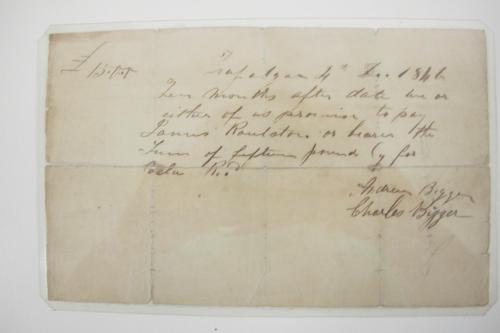 £15.0.0
Trafalgar 4th Dec 1846
Ten months after date we or
either of us promise to pay
James Raulston or bearer the
Sum of fifteen pounds Cy for
Value Rd
Andrew Bigger
Charles Bigger